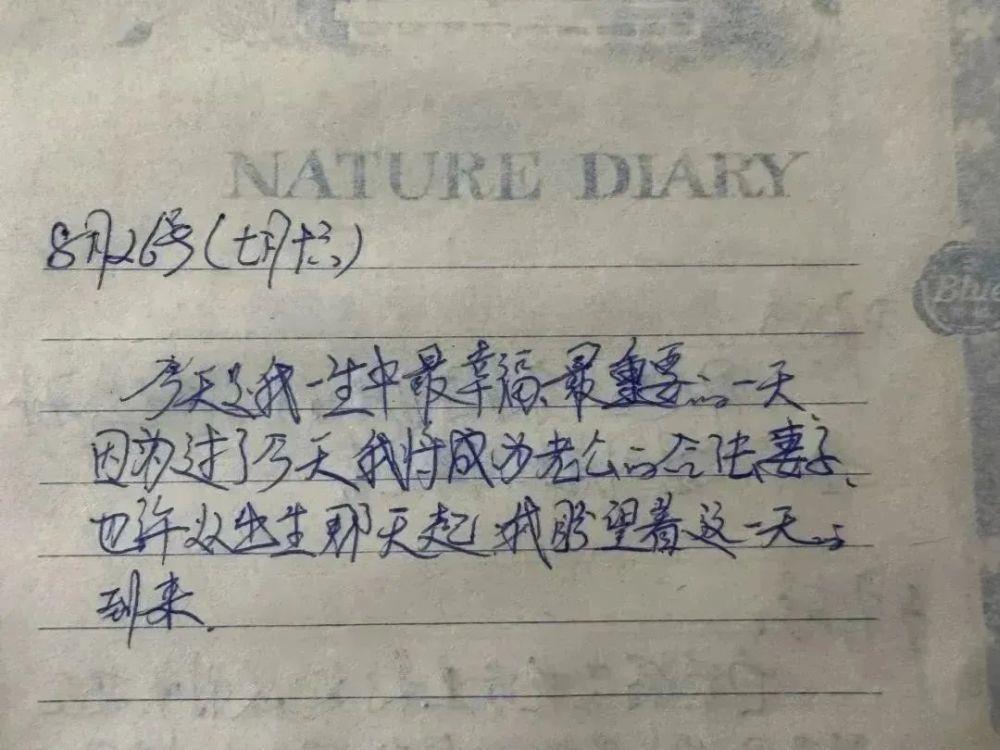 NATURE DIARY
8月26号(七月十六)
Blue
今天是我一生中最幸福、最重要的一天
因为过了今天我将成为老公的合法妻子、
也许从出生那天起,我盼望着这一天的
到来.